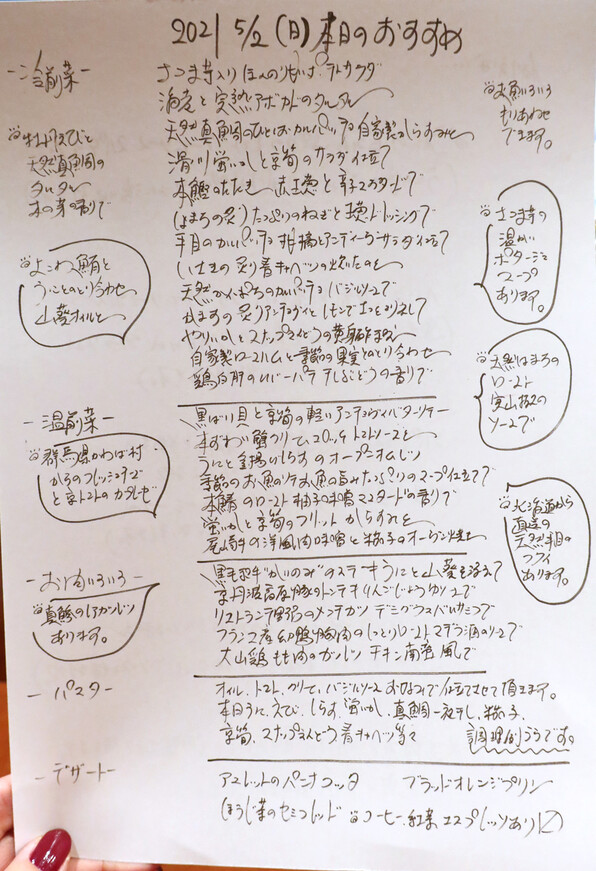 2021 5/2 (日) 本日のおすすめ
-冷前菜-
さつま芋入り ほんのり甘い ポテトサラダ
海老と完熟アボカドのタルタル
天然真鯛のひとはだカルパッチョ 自家製からすみと
滑川蛍いかと京筍のサラダ仕立て
本鰹のたたき 赤玉葱と辛子マスタードで
はまちの炙り たっぷりのねぎと玉葱ドレッシングで
平目のカルパッチョ 柑橘とアンディーブサラダ仕立て
いさきの炙り 春キャベツの炊いたのと
天然かんぱちのカルパッチョ バジルソースで
ますの炙り アンチョヴィとレモンで
やりいかとスナップえんどうの
自家製ロースハムと季節の果実のとり合わせ
鶏白肝のレバーパテ 干しぶどうの香りで
牡丹えびと
天然真鯛の
タルタル
木の芽の香りで
よこわ鮪と
うにとのとり合わせ
山葵オイルと
お魚いろいろ
もりあわせ
できます。
さつま芋の
温かい
ポタージュ
スープ
あります。
天然はまちの
ロースト
実山椒の
ソースで
北海道から
直送の
天然平目の
フライ
あります。
-温前菜-
黒ばい貝と京筍の軽いアンチョヴィバターソテー
本ずわい蟹クリームコロッケ トマトソースと
うにと釜揚げしらすのオープンオムレツ
季節のお魚のソテ お魚の旨みたっぷりのスープ仕立てで
本鰆のロースト 柚子味噌マスタードの香りで
蛍いかと京筍のフリット からすみを
尾崎牛の洋風肉味噌と茄子のオーブン焼き
群馬県かわば村
からのフレッシュチーズ
と京トマトのカプレーゼ
-お肉いろいろ-
黒毛和牛"かいのみ"のステーキ うにと山葵を添えて
京丹波高原豚のトンテキ りんごじょうゆソースで
リストランテ野呂のメンチカツ デミグラスバルサミコで
フランス産幼鴨胸肉のしっとりロースト マデラ酒のソースで
大山鶏もも肉のカツレツ チキン南蛮風で
真鯵のレアカツレツ
あります。
- パスタ -
オイル、トマト、クリーム、バジルソース お好みで仕立てさせて頂きます。
本日うに、えび、しらす、蛍いか、真鯛一夜干し、茄子、
京筍、スナップえんどう、春キャベツ等々
-デザート-
アメレットのパンナコッタ ブラッドオレンジプリン
ほうじ茶のセミフレッド コーヒー、紅茶、エスプレッソあり〼